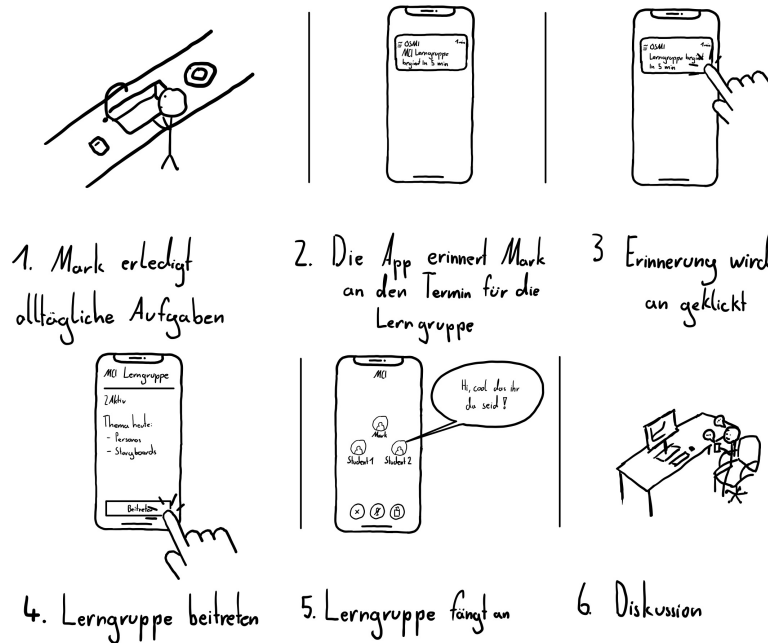 OSMI 1min
MCI Lerngruppe
beginnt in 5 min
OSMI 1min
Lerngruppe beginnt
in 5 min
1. Mark erledigt
alltägliche Aufgaben
2. Die App erinnert Mark
an den Termin für die
Lerngruppe
3 Erinnerung wird
an geklickt
MCI Lerngruppe
2 Aktiv
Thema heute:
- Personas
- Storyboards
Beitreten
MCI
Hi, cool das ihr
da seid!
Mark
Student 1
Student 2
4. Lerngruppe beitreten
5. Lerngruppe fängt an
6. Diskussion